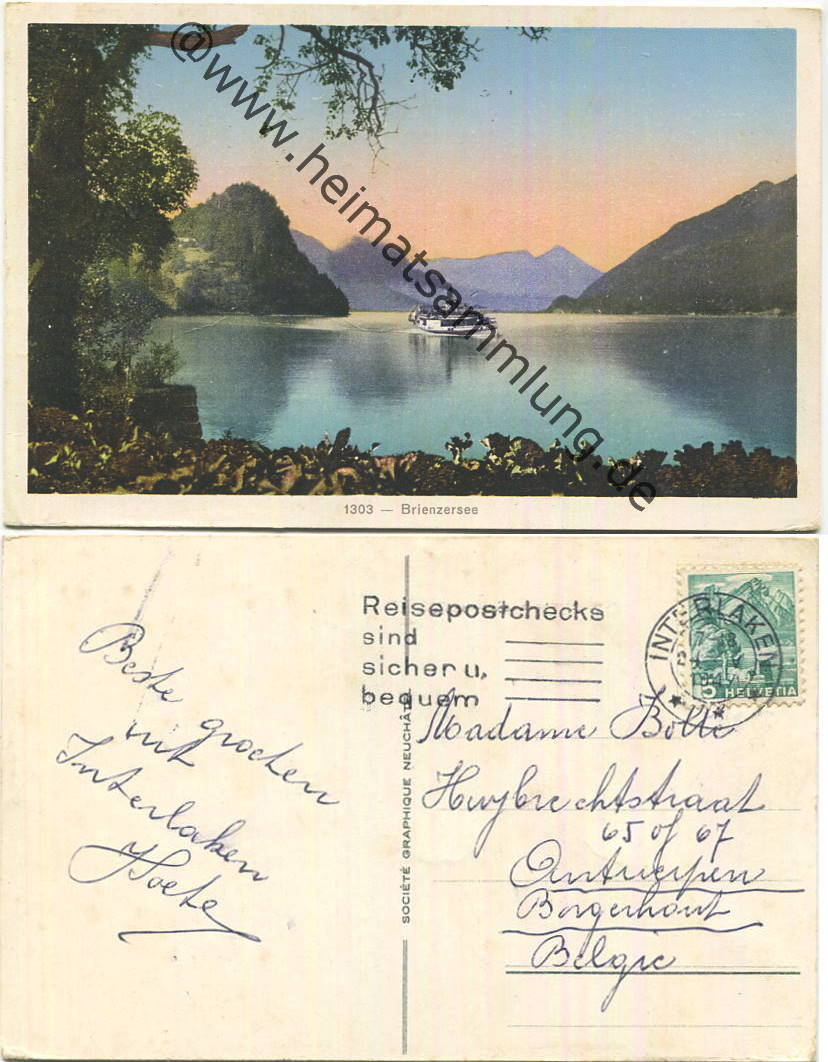 @www.heimatsammlung.de
1303 — Brienzersee
Reisepostchecks
sind
sicher u.
bequem
INTERLAKEN
5 HELVETIA
SOCIÉTÉ GRAPHIQUE NEUCHÂTEL
Beste groeten
uit
Interlaken
Madame Bolle
Huybrechtstraat
65 of 67
Antwerpen
Borgerhout
Belgie